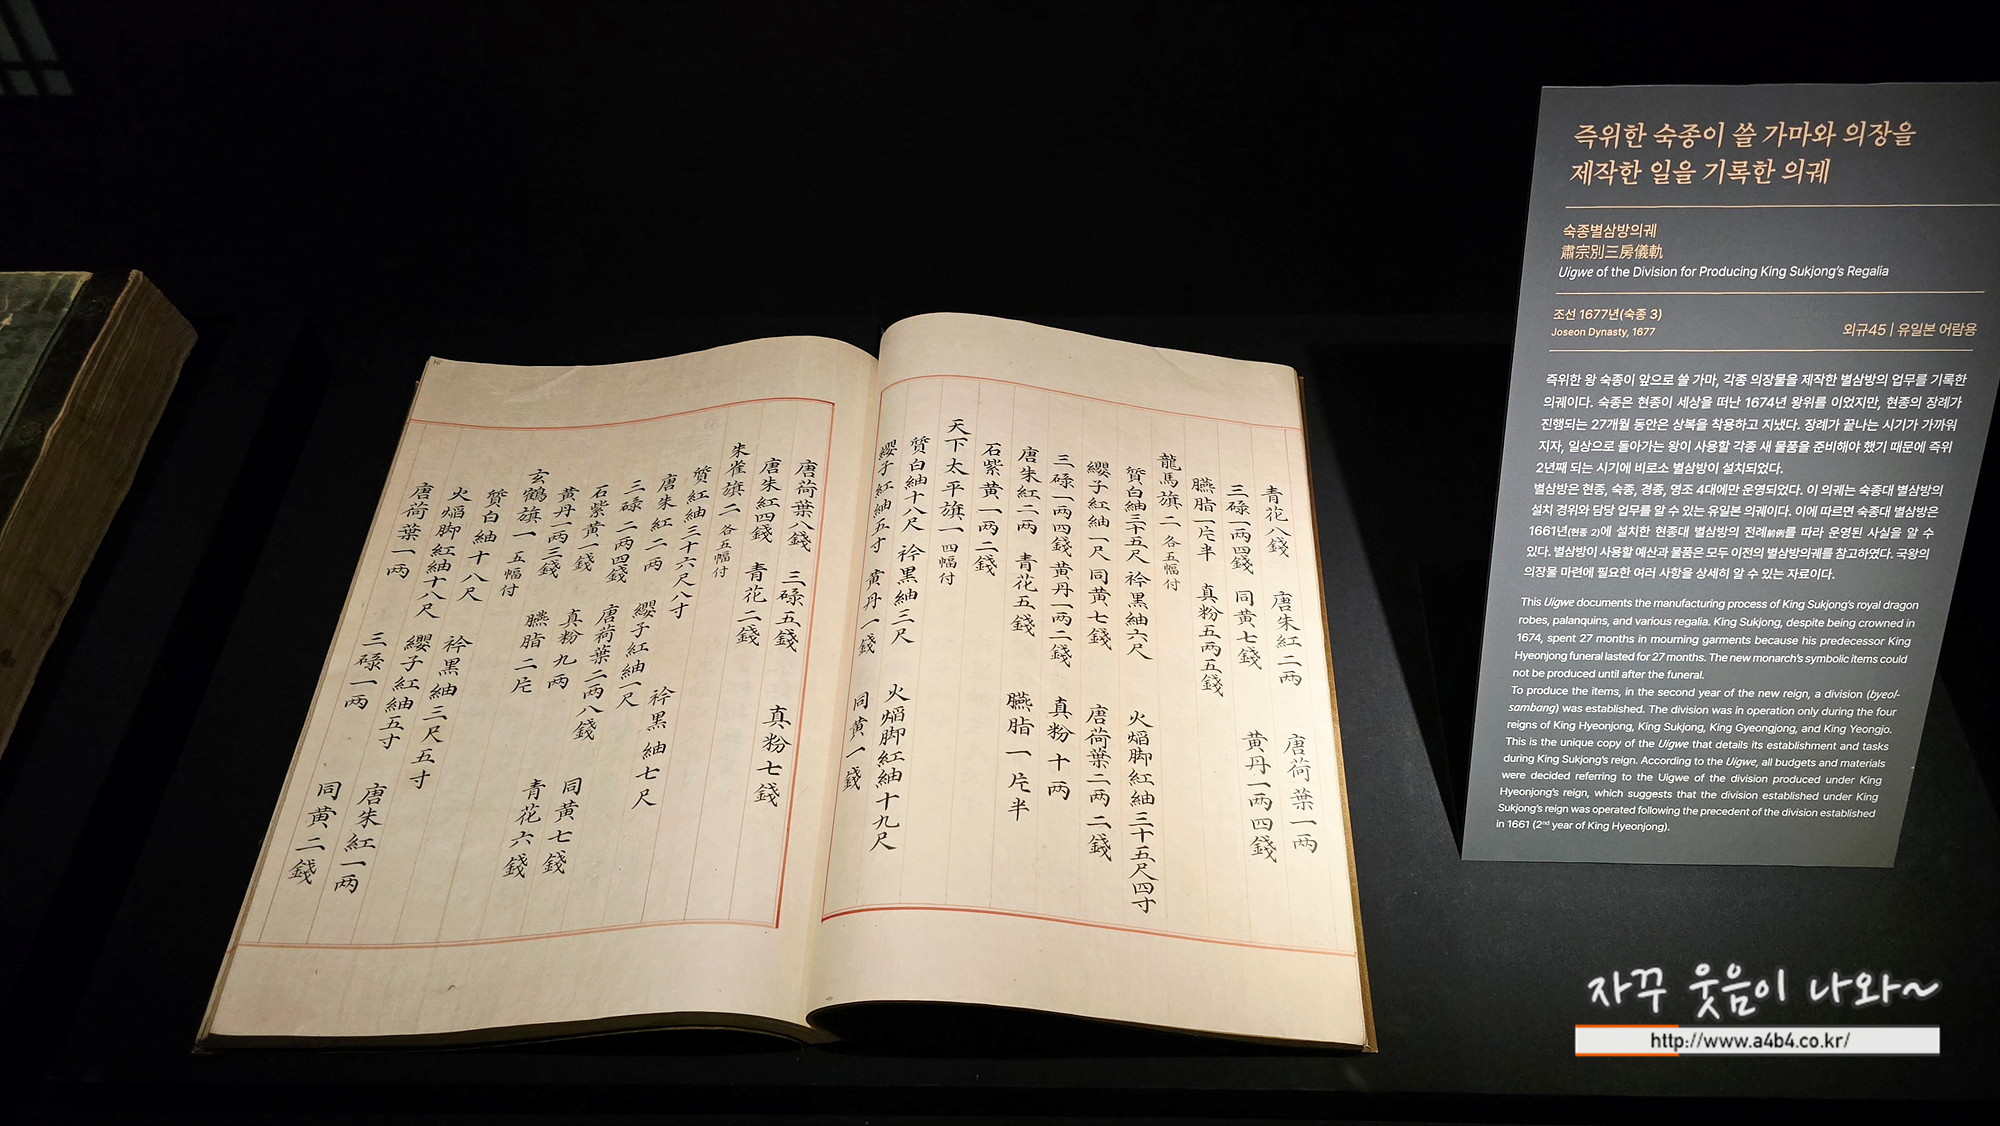 青花八錢 唐朱紅二両 唐荷葉一両
三碌一両四錢 同黃七錢 黃丹一両四錢
臙脂一片半 真粉五両五錢
龍馬旗二 各五幅付
質白紬三十五尺 衿黑紬六尺 火焰脚紅紬三十五尺四寸
纓子紅紬一尺 同黃七錢 唐荷葉二両二錢
三碌一両四錢 黃丹一両二錢 真粉十両
唐朱紅二両 青花五錢 臙脂一片半
石紫黃一両二錢
天下太平旗一 四幅付
質白紬十八尺 衿黑紬三尺 火焰脚紅紬十九尺
纓子紅紬五寸 黃丹一錢 同黃一錢
唐荷葉八錢 三碌五錢 真粉七錢
唐朱紅四錢 青花二錢
朱雀旗二 各五幅付
質紅紬三十六尺八寸 衿黑紬七尺
唐朱紅二両 纓子紅紬一尺
三碌二両四錢 唐荷葉二両八錢 同黃七錢
石紫黃一錢 真粉九両 青花六錢
黃丹一両三錢 臙脂二片
玄鶴旗一 五幅付
質白紬十八尺 衿黑紬三尺五寸
火焰脚紅紬十八尺 纓子紅紬五寸 唐朱紅一両
唐荷葉一両 三碌一両 同黃二錢
즉위한 숙종이 쓸 가마와 의장을
제작한 일을 기록한 의궤
숙종별삼방의궤
肅宗別三房儀軌
Uigwe of the Division for Producing King Sukjong's Regalia
조선 1677년(숙종 3)
Joseon Dynasty, 1677
외규45 | 유일본 어람용
즉위한 왕 숙종이 앞으로 쓸 가마, 각종 의장물을 제작한 별삼방의 업무를 기록한
의궤이다. 숙종은 현종이 세상을 떠난 1674년 왕위를 이었지만, 현종의 장례가
진행되는 27개월 동안은 상복을 착용하고 지냈다. 장례가 끝나는 시기가 가까워
지자, 일상으로 돌아가는 왕이 사용할 각종 새 물품을 준비해야 했기 때문에 즉위
2년째 되는 시기에 비로소 별삼방이 설치되었다.
별삼방은 현종, 숙종, 경종, 영조 4대에만 운영되었다. 이 의궤는 숙종대 별삼방의
설치 경위와 담당 업무를 알 수 있는 유일본 의궤이다. 이에 따르면 숙종대 별삼방은
1661년(현종 2)에 설치한 현종대 별삼방의 전례前例를 따라 운영된 사실을 알 수
있다. 별삼방이 사용할 예산과 물품은 모두 이전의 별삼방의궤를 참고하였다. 국왕의
의장물 마련에 필요한 여러 사항을 상세히 알 수 있는 자료이다.
This Uigwe documents the manufacturing process of King Sukjong's royal dragon
robes, palanquins, and various regalia. King Sukjong, despite being crowned in
1674, spent 27 months in mourning garments because his predecessor King
Hyeonjong funeral lasted for 27 months. The new monarch's symbolic items could
not be produced until after the funeral.
To produce the items, in the second year of the new reign, a division (byeol-
sambang) was established. The division was in operation only during the four
reigns of King Hyeonjong, King Sukjong, King Gyeongjong, and King Yeongjo.
This is the unique copy of the Uigwe that details its establishment and tasks
during King Sukjong's reign. According to the Uigwe, all budgets and materials
were decided referring to the Uigwe of the division produced under King
Hyeonjong's reign, which suggests that the division established under King
Sukjong's reign was operated following the precedent of the division established
in 1661 (2nd year of King Hyeonjong).
자꾸 웃음이 나와~
http://www.a4b4.co.kr/